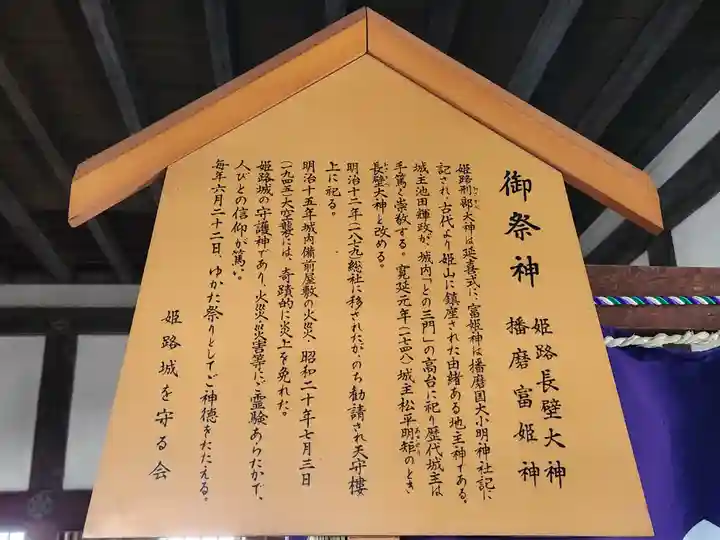 御祭神
姫路長壁大神
播磨富姫神
姫路刑部大神は延喜式に、富姫神は播磨国大小明神社記に
記され、古代より姫山に鎮座された由緒ある地主神である。
城主池田輝政が、城内「との三門」の高台に祀り歴代城主は
手篤く崇敬する。寛延元年(一七四八)城主松平明矩のとき
長壁大神と改める。
明治十二年(一八七九)総社に移されたが、のち勧請され天守楼
上に祀る。
明治十五年城内備前屋敷の火災、昭和二十年七月三日
(一九四五)大空襲には、奇蹟的に炎上を免れた。
姫路城の守護神であり、火災、災害等にご霊験あらたかで、
人びとの信仰が篤い。
毎年六月二十二日、ゆかた祭りとしてご神徳をたたえる。
姫路城を守る会